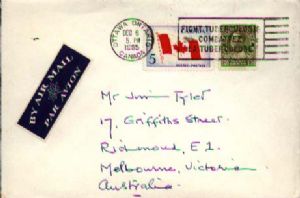 OTTAWA ONTARIO
DEC 6
5 PM
1965
CANADA
FIGHT TUBERCULOSIS
COMBATTEZ
LA TUBERCULOSE
5
BY AIR MAIL
PAR AVION
Mr Jimi Tyler
17, Griffiths Street
Richmond, E.1
Melbourne, Victoria
Australia.